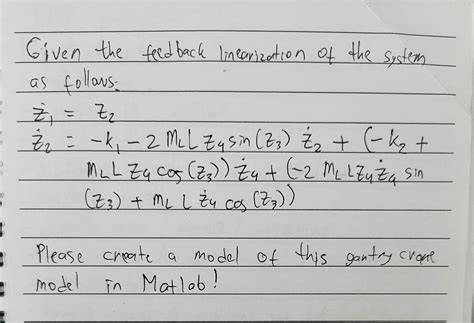 Given the feedback linearization of the system
as follows:
ż₁ = z₂
ż₂ = -k₁ - 2 m_L L z₄ sin(z₃) ż₂ + (-k₂ +
m_L L z₄ cos(z₃)) ż₄ + (-2 m_L L z₄ ż₄ sin
(z₃) + m_L L ż₄ cos(z₃))
Please create a model of this gantry crane
model in Matlab!